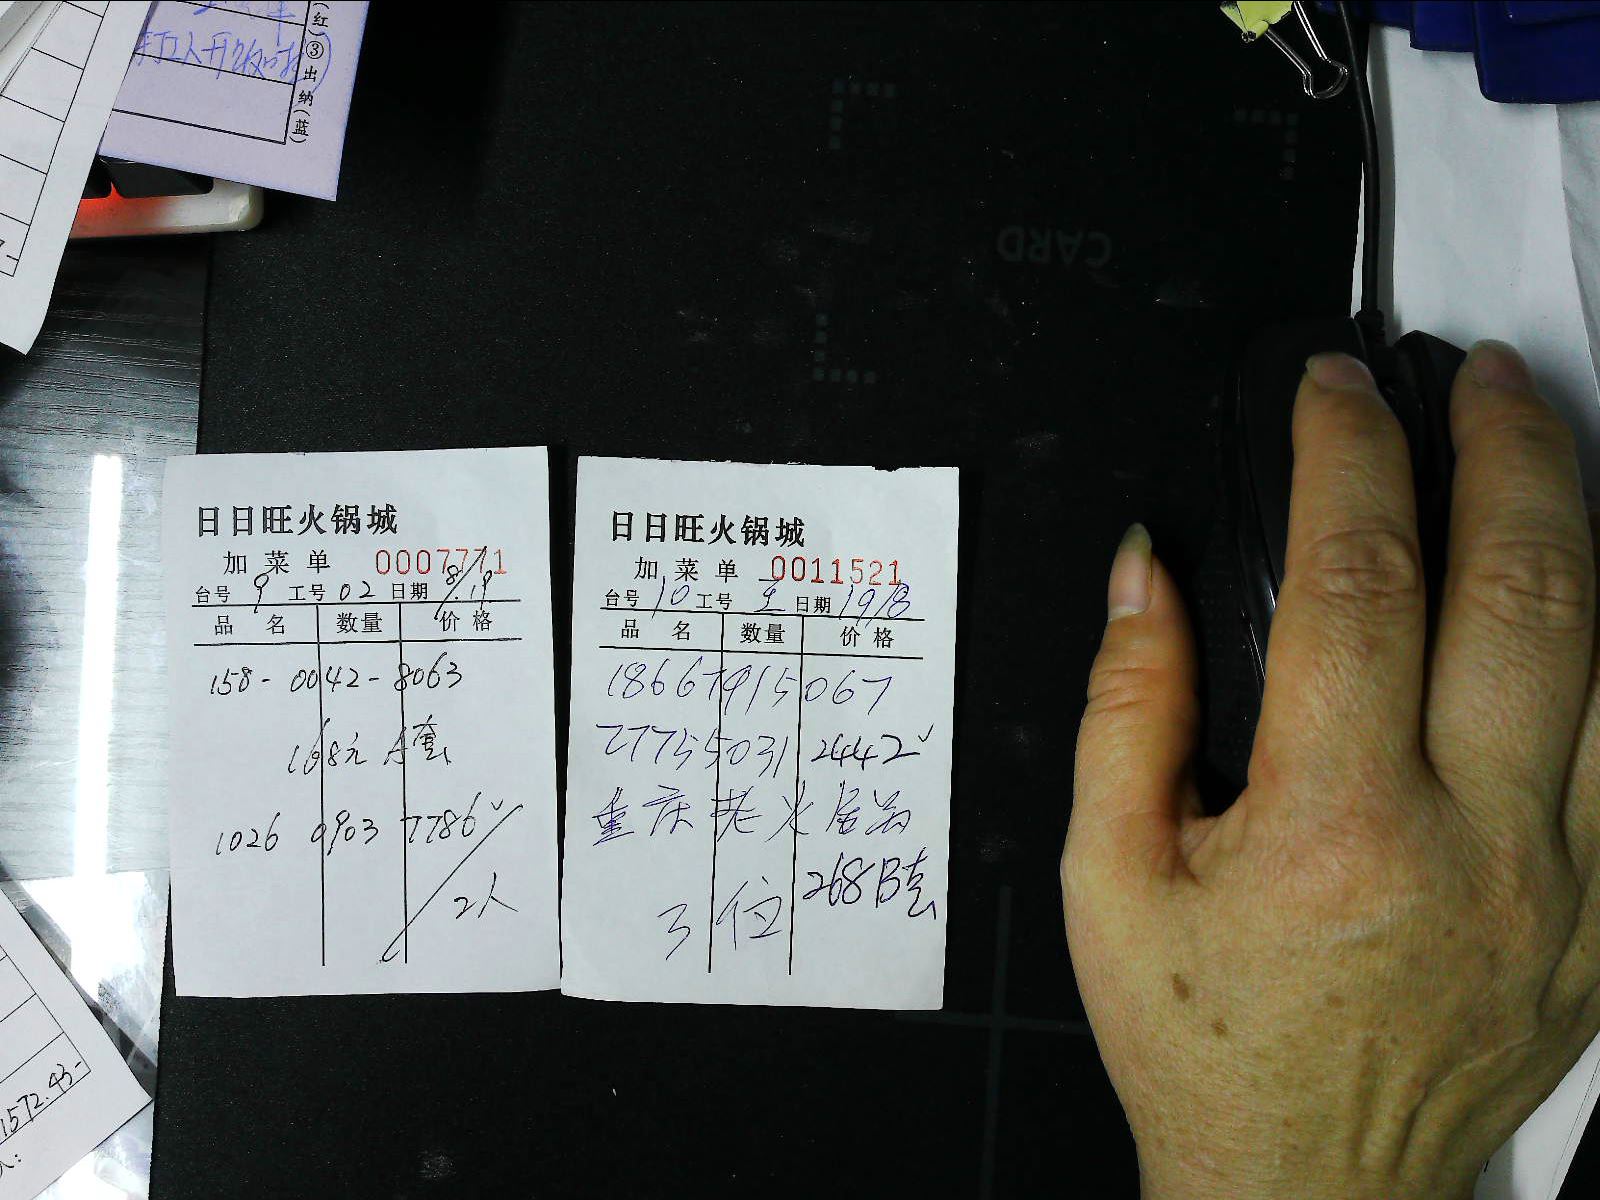 (红)③出纳(蓝)
CARD
日日旺火锅城
加菜单 0007771
台号 9 工号 02 日期 8/19
品名 数量 价格
158-0042-8063
168元 A套
1026 0903 7786
2人
日日旺火锅城
加菜单 0011521
台号 10 工号 王 日期 19/8
品名 数量 价格
18667915067
77755031 2442
重庆老火
268B套
3位
1572.43-